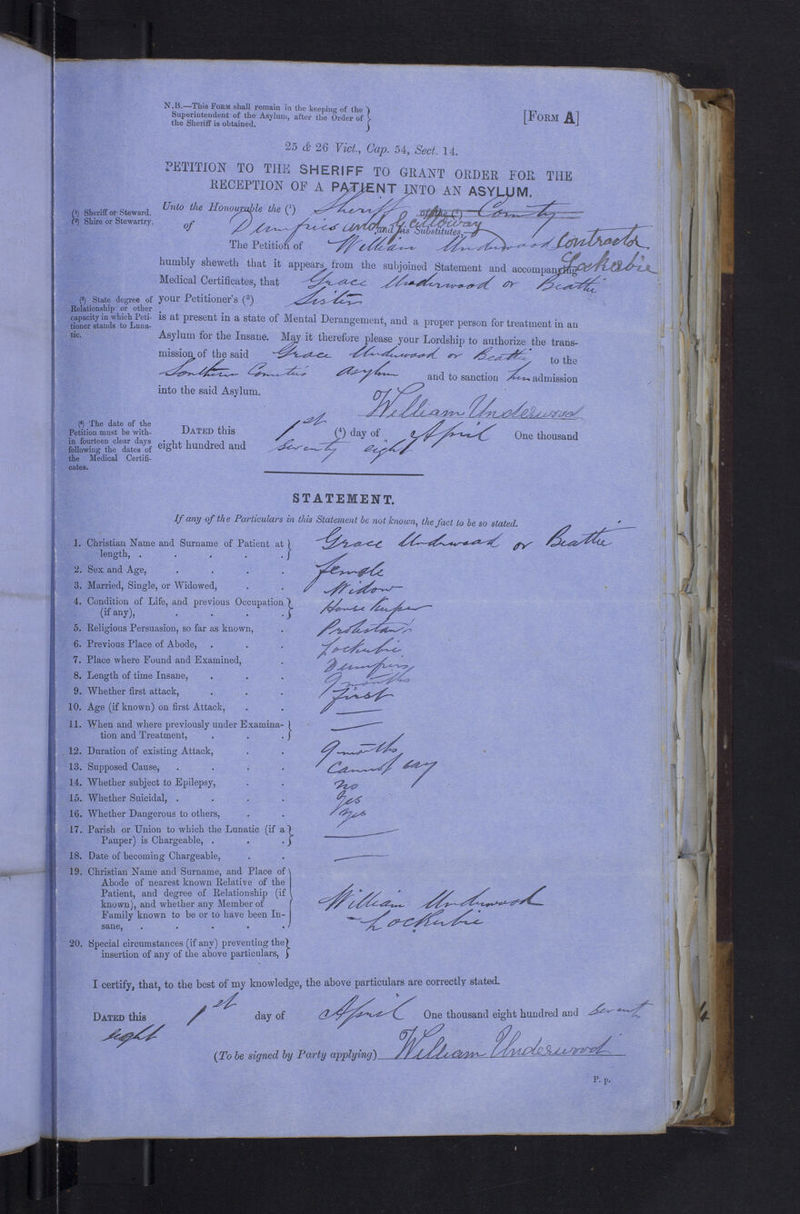 N.B.—This Form shall remain in the keeping of the
Superintendent of the Asylum, after the Order of
the Sheriff is obtained.
[Form A]
25 & 26 Vict., Cap. 54, Sect. 14.
PETITION TO THE SHERIFF TO GRANT ORDER FOR THE
RECEPTION OF A PATIENT INTO AN ASYLUM.
(¹) Sheriff or Steward.
(²) Shire or Stewartry.
Unto the Honourable the (¹) Sheriff of the (²) County
of Dumfries and Galloway and his Substitutes,
The Petition of William Underwood Contractor
Lockerbie
humbly sheweth that it appears from the subjoined Statement and accompanying
Medical Certificates, that Grace Underwood or Beattie
(³) State degree of
Relationship or other
capacity in which Peti-
tioner stands to Luna-
tic.
your Petitioner's (³) Sister
is at present in a state of Mental Derangement, and a proper person for treatment in an
Asylum for the Insane. May it therefore please your Lordship to authorize the trans-
mission of the said Grace Underwood or Beattie to the
Southern Counties Asylum and to sanction her admission
into the said Asylum.
William Underwood
(⁴) The date of the
Petition must be with-
in fourteen clear days
following the dates of
the Medical Certifi-
cates.
Dated this 1st (⁴) day of April One thousand
eight hundred and seventy eight
STATEMENT.
If any of the Particulars in this Statement be not known, the fact to be so stated.
1. Christian Name and Surname of Patient at
length, . . . . . Grace Underwood or Beattie
2. Sex and Age, . . . . female
3. Married, Single, or Widowed, . . Widow
4. Condition of Life, and previous Occupation
(if any), . . . . House Keeper
5. Religious Persuasion, so far as known, . Protestant
6. Previous Place of Abode, . . . Lockerbie
7. Place where Found and Examined, . Dumfries
8. Length of time Insane, . . . 9 months
9. Whether first attack, . . . first
10. Age (if known) on first Attack, . . —
11. When and where previously under Examina-
tion and Treatment, . . . —
12. Duration of existing Attack, . . 9 months
13. Supposed Cause, . . . . Cannot say
14. Whether subject to Epilepsy, . . no
15. Whether Suicidal, . . . . yes
16. Whether Dangerous to others, . . yes
17. Parish or Union to which the Lunatic (if a
Pauper) is Chargeable, . . . —
18. Date of becoming Chargeable, . . —
19. Christian Name and Surname, and Place of
Abode of nearest known Relative of the
Patient, and degree of Relationship (if
known), and whether any Member of
Family known to be or to have been In-
sane, . . . . . .
William Underwood
- Lockerbie
20. Special circumstances (if any) preventing the
insertion of any of the above particulars,
I certify, that, to the best of my knowledge, the above particulars are correctly stated.
Dated this 1st day of April One thousand eight hundred and seventy
eight
(To be signed by Party applying) William Underwood
P. p.